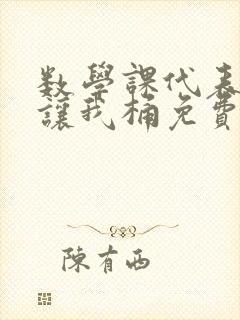 数學課代表
讓我桶免費
陳有西